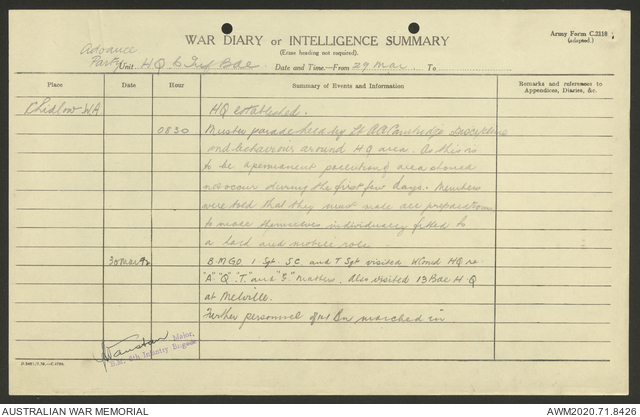 WAR DIARY or INTELLIGENCE SUMMARY
(Erase heading not required).
Army Form C.2118
(adapted.)
Advance
Party Unit HQ 6 Inf Bde Date and Time—From 29 Mar To
Place Date Hour Summary of Events and Information Remarks and references to Appendices, Diaries, &c.
Chidlow WA HQ established.
0830 Muster parade held by Lt
and behaviour around HQ area. As this is
to be a permanent area
not occur during the first few days. Members
were told that they must make all preparations
to make themselves individually fitted to
a hard and mobile role.
30 Mar 42 B M G O 1 Sgt. S.C. and T Sgt visited HQ re
"A" "Q" "T." and "G" matters. Also visited 13 Bde H.Q
at Melville.
Further personnel of Bn marched in
Major,
B.M. 6th Infantry Brigade
AUSTRALIAN WAR MEMORIAL
AWM2020.71.8426